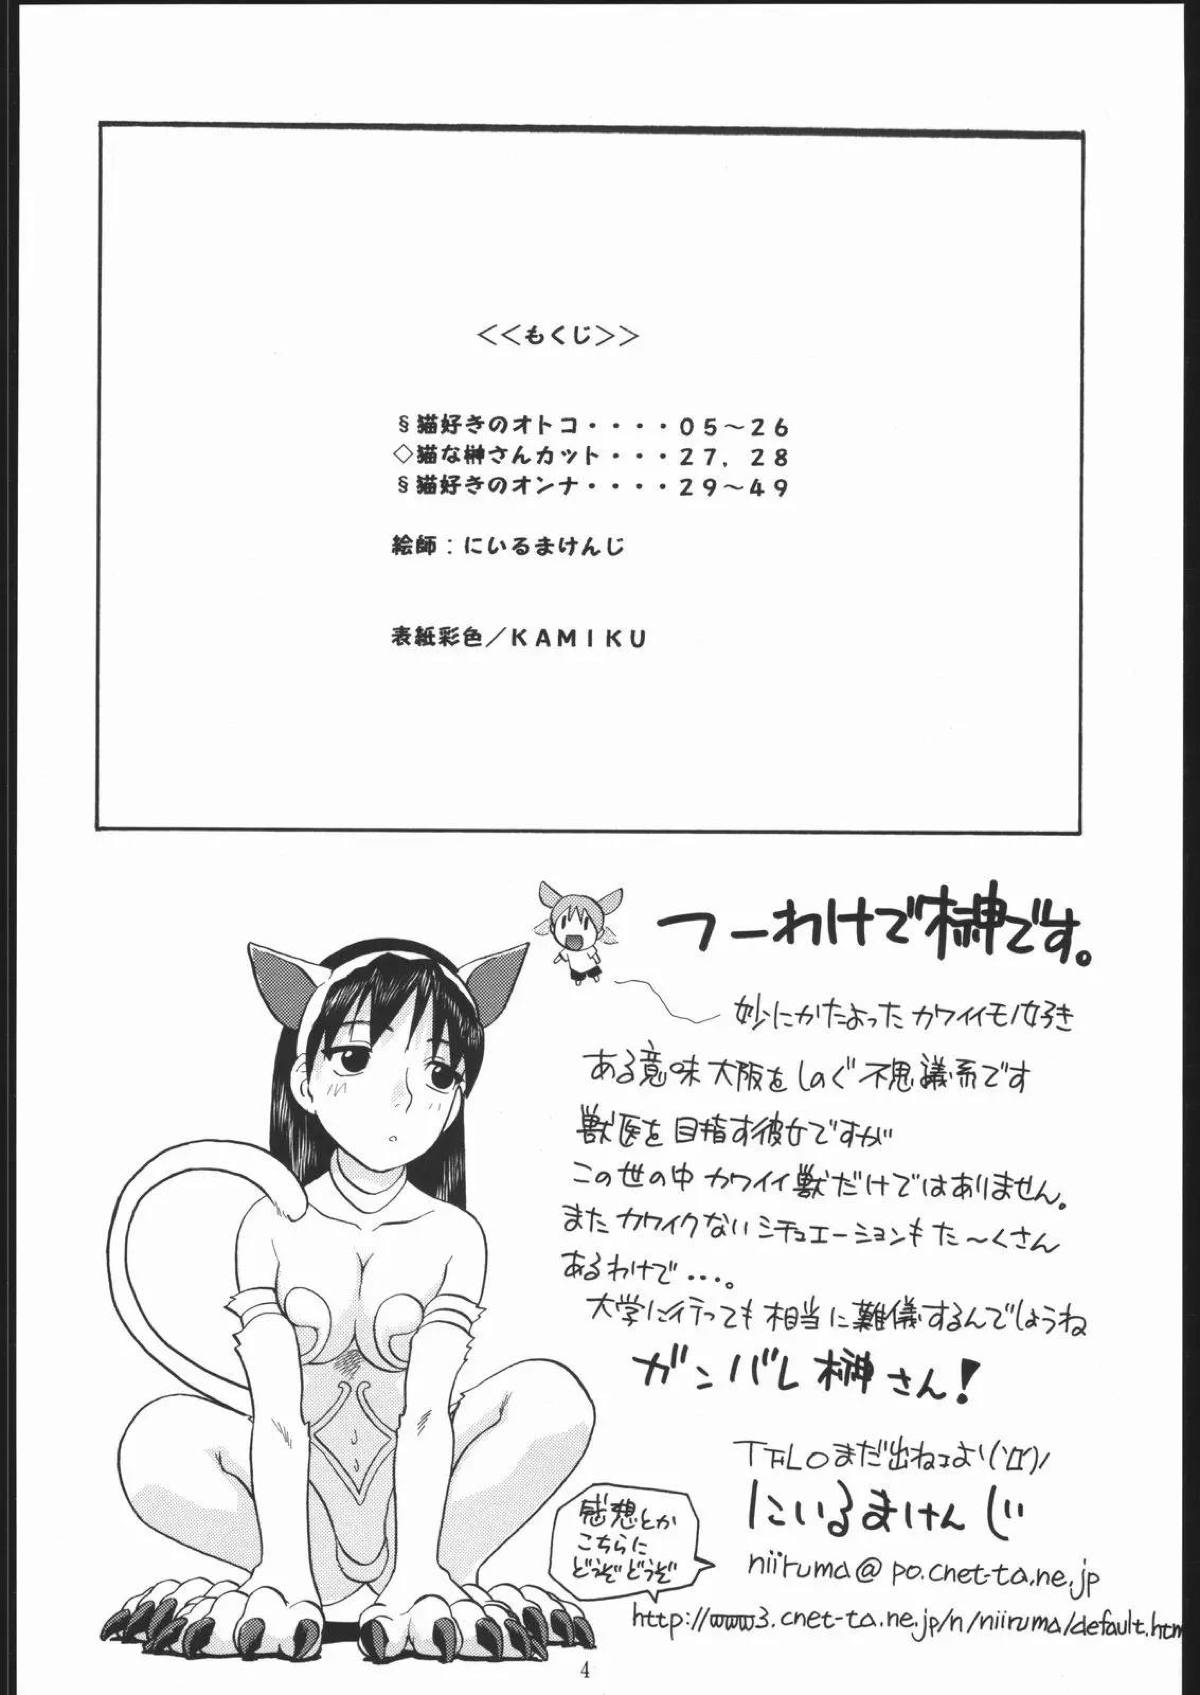 ＜＜もくじ＞＞
§猫好きのオトコ・・・・０５～２６
◇猫な榊さんカット・・・２７，２８
§猫好きのオンナ・・・・２９～４９
絵師：にいるまけんじ
表紙彩色／ＫＡＭＩＫＵ
つーわけで榊です。
妙にかたよったカワイイモノ好き
ある意味大阪をしのぐ不思議系です
獣医を目指す彼女ですが
この世の中カワイイ獣だけではありません。
またカワイクないシチュエーションもた～くさん
あるわけで・・・。
大学に行っても相当に難儀するんでしょうね
ガンバレ榊さん!
まだ出ねェよ!
にいるまけんじ
感想とか
こちらに
どうぞどうぞ
niiruma@po.cnet-ta.ne.jp
http://www3.cnet-ta.ne.jp/n/niiruma/default.htm
4